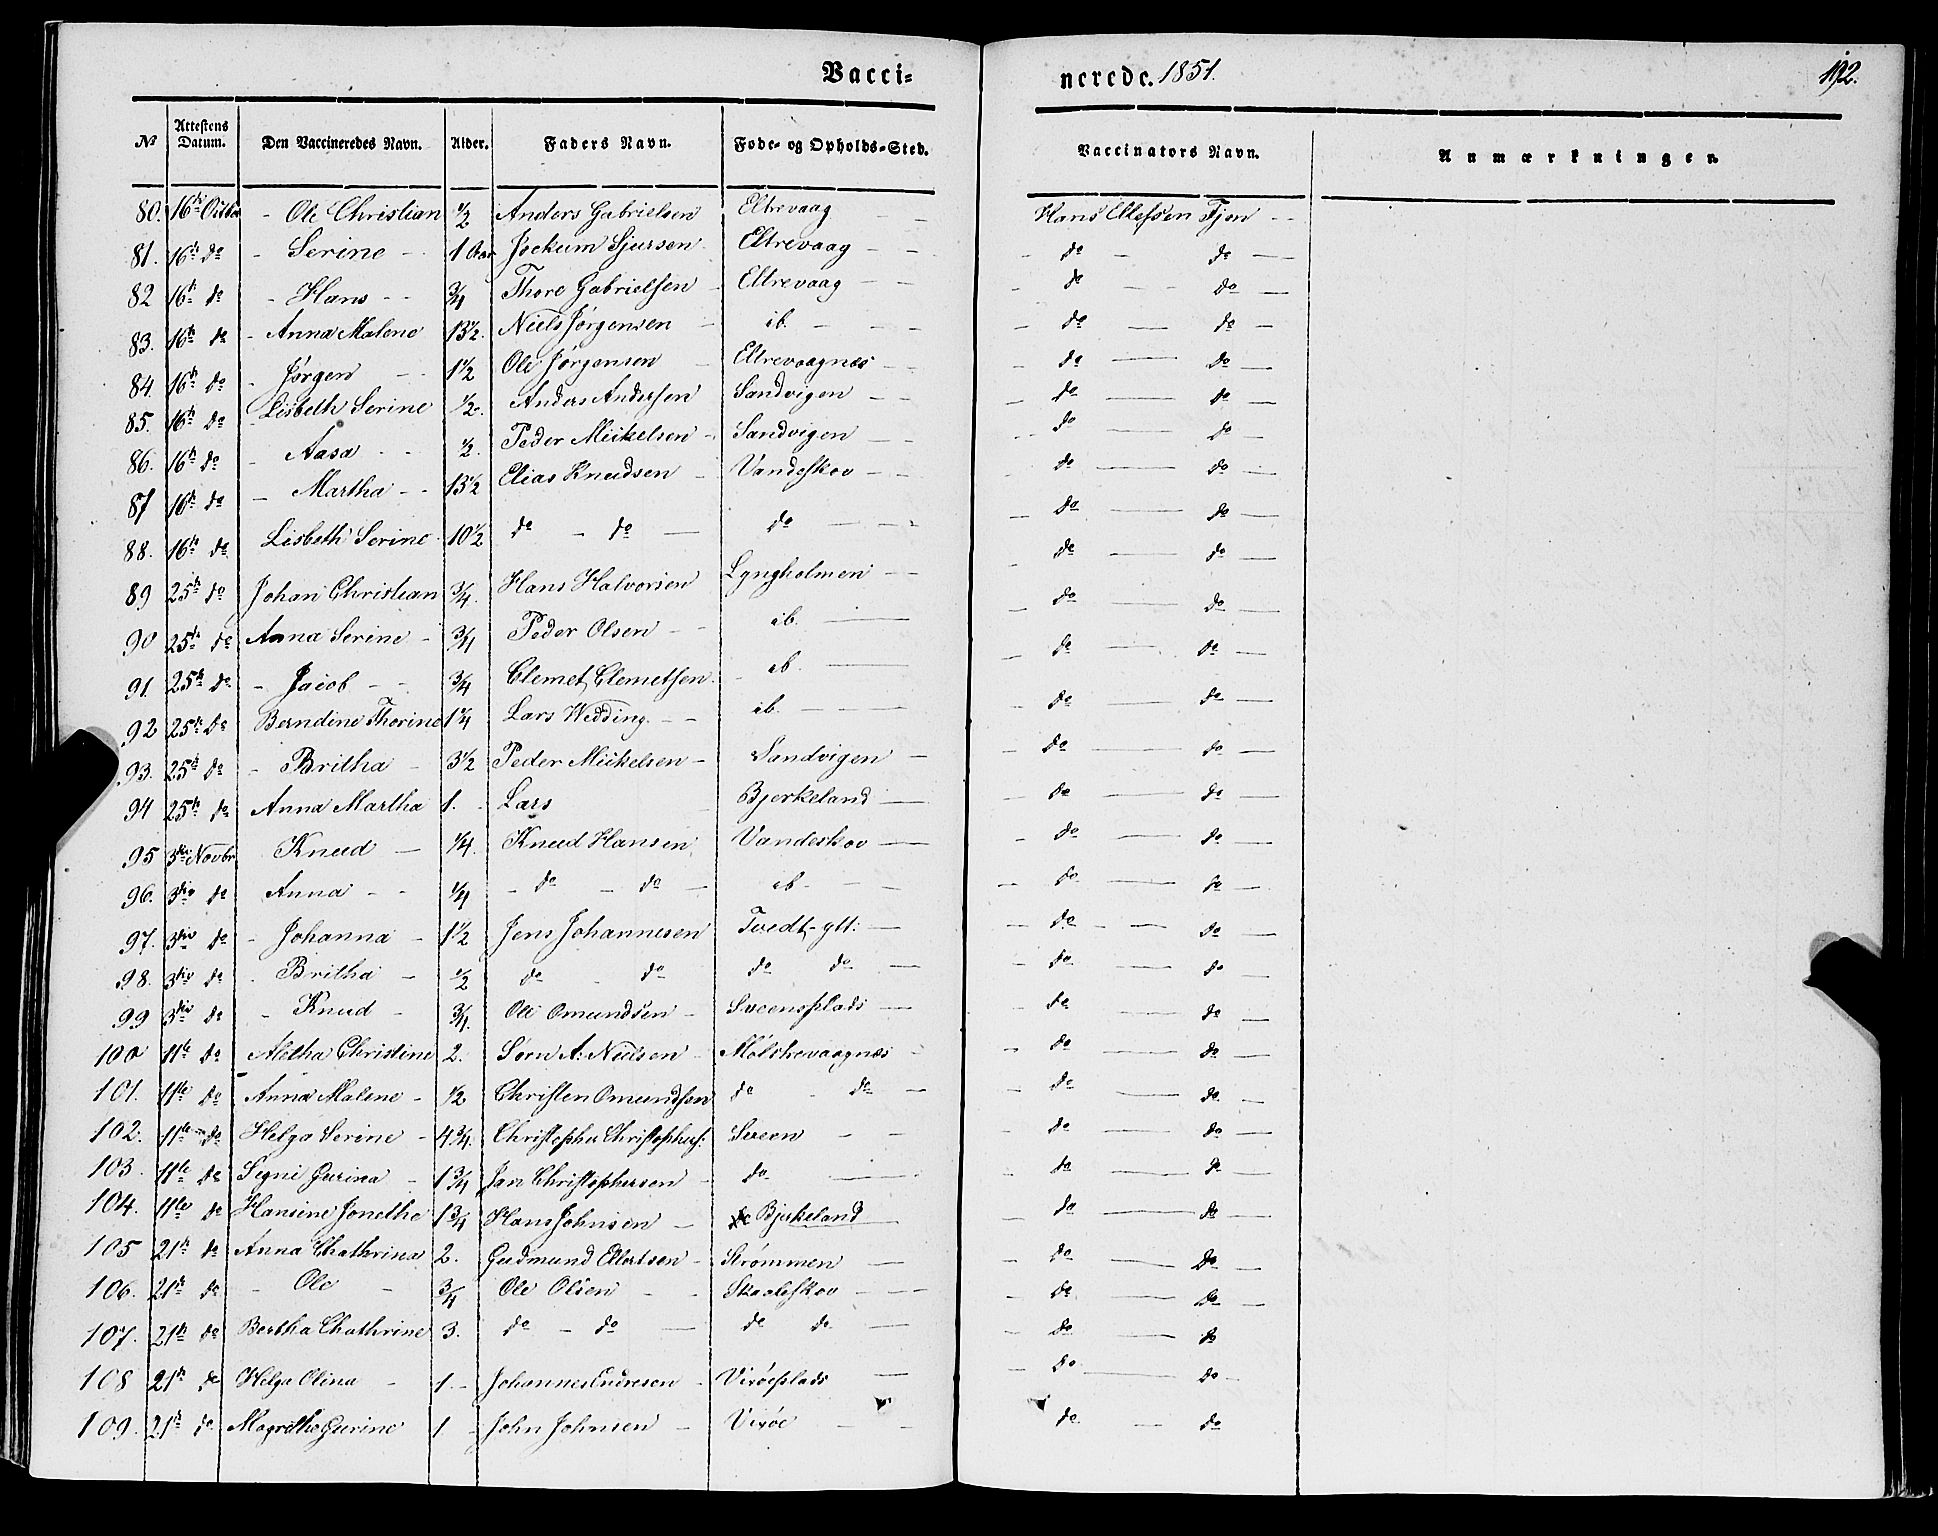 Vacci-
nerede. 1851.
192.
№ Attestens Datum. Den Vaccineredes Navn. Alder. Faders Navn. Føde- og Opholds-Sted. Vaccinators Navn. Anmærkninger.
80. 16de Octbr - Ole Christian 1/2 Anders Gabrielsen Eltrevaag - Hans Ellefsen Tjøn - -
81. 16de do - Serine - 1 Aar Jockum Sjursen Eltrevaag - - - do - do -
82 16de do - Hans - - 3/4 Thore Gabrielsen - Eltrevaag - - - do - - do -
83. 16de do - Anna Malene 13 1/2. Niels Jørgensen - ib. - - - - do - do -
84. 16de do - Jørgen - - 1 1/2 Ole Jørgensen - Eltrevaagnæs - - - do - do -
85. 16de do - Lisbeth Serine 1/2. Anders Andersen Sandvigen - - - do - do -
86. 16de do - Aasa - - 1/2. Peder Mickelsen - Sandvigen - - - do - do -
87 16de do - Martha - - 13 1/2 Elias Knudsen - Vandeskov - - - do - do -
88. 16de do Lisbeth Serine 10 1/2 do - do - do - - - - do - do -
89 25de do Johan Christian 3/4. Hans Halvorsen Lyngholmen - - - do - do -
90 25de do Anna Serine - 3/4 Peder Olsen - - ib. - - do - do -
91. 25de do - Jacob - - 3/4 Clemet Clemetsen. - ib - - do - do -
92 25de do Berndine Thorine 1 1/4 Lars Wedding. - - ib. - - - do - do -
93. 25de do - Britha - 3 1/2 Peder Mickelsen - Sandvigen - - do - do -
94 25de do Anna Martha 1. - Lars - Bjerkeland - - do - do -
95 3die Novbr Knud - 1/4. Knud Hansen Vandeskov - - do - do -
96. 3die do Anna - - 1/4 - do - do - ib - - - - do - do -
97. 3die do - Johanna - 1 1/2 Jens Johannesen Tvedt - ytt: - - do - - do -
98. 3die do - Britha - 1/2 do - do do do - - do - do -
99 3die do - Knud - 3/4. Ole Omundsen - Sveensplads - - do - do -
100 11te do Aletha Christine 2. Sørn A: Nielsen - Mølstrevaagnæs - - do - do -
101. 11te do Anna Malene - 1/2 Christen Omundsen do - do - - do - do -
102. 11te do Helga Serine - 4 3/4. Christopher Christophers: Sveen - - - do - do -
103. 11te do Segni Gurina - 1 3/4 Jan Christophersen - do - - - do - do -
104. 11te do Hansine Jonethe 1 3/4 Hans Johnsen - Bjerkeland - do - do -
105 21de do Anna Chathrina 2. Gudmund Ellertsen - Strømmen - - do - do -
106. 21de do - Ole - 3/4 Ole Olsen - - Skoaleskov - - - do - do -
107. 21de do Bertha Chathrine 3. do - do - do do - - do - do
108 21de do Helga Olina - 1. - Johannes Endresen - Vixøeplads - - do - do -
109. 21de do Magrethe Gurine 1 - John Johnsen - Vixøe - - do. - do